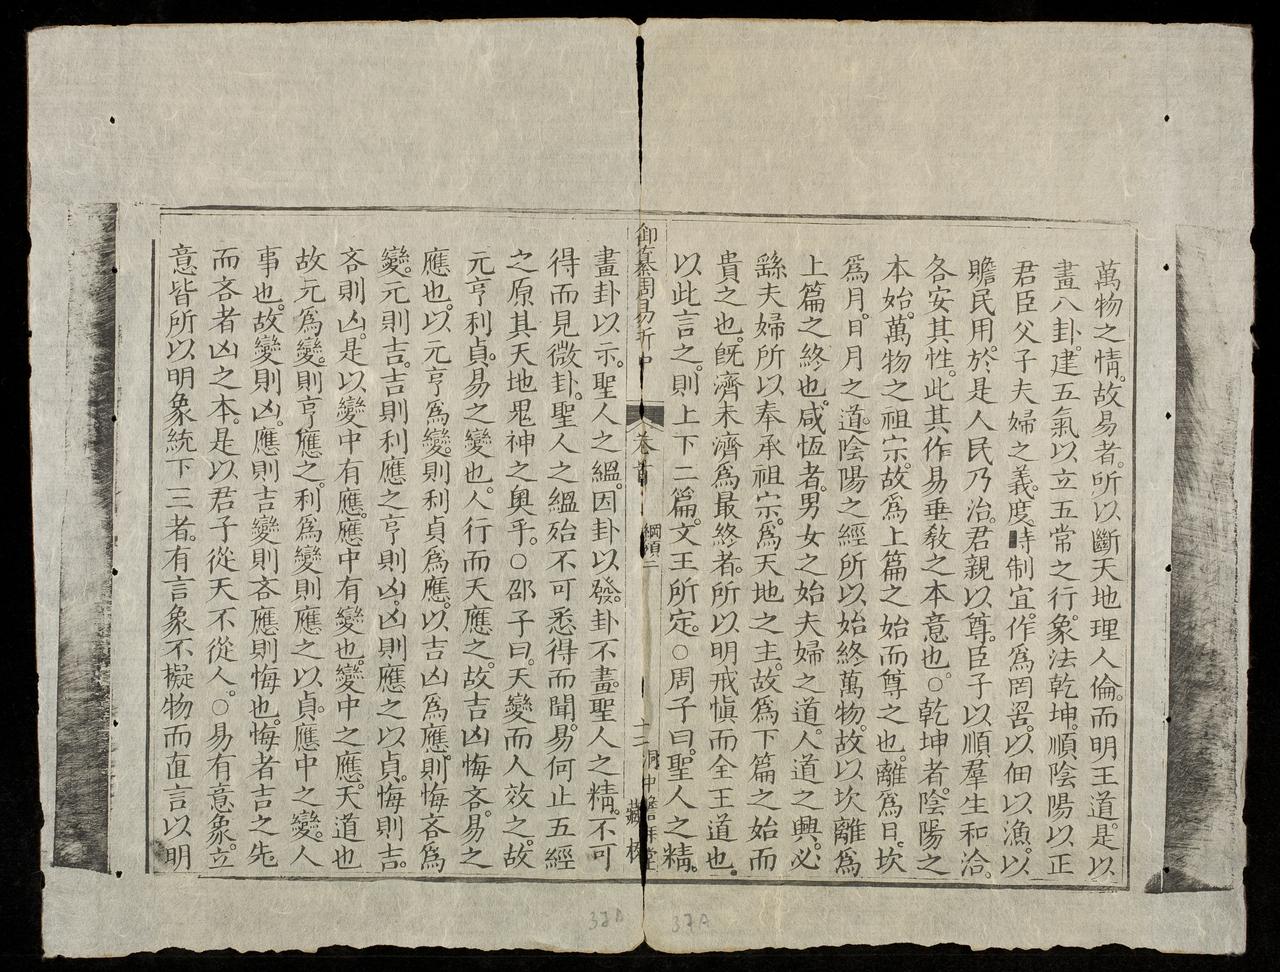 萬物之情。故易者。所以斷天地理人倫。而明王道。是以
畫八卦。建五氣。以立五常之行。象法乾坤。順陰陽。以正
君臣父子夫婦之義。度時制宜。作爲罔罟。以佃以漁。以
贍民用。於是人民乃治。君親以尊。臣子以順。羣生和洽。
各安其性。此其作易垂敎之本意也。○乾坤者。陰陽之
本始。萬物之祖宗。故爲上篇之始而尊之也。離爲日。坎
爲月。日月之道。陰陽之經。所以始終萬物。故以坎離爲
上篇之終也。咸恆者。男女之始。夫婦之道。人道之興。必
繇夫婦所以奉承祖宗。爲天地之主。故爲下篇之始而
貴之也。旣濟未濟爲最終者。所以明戒愼而全王道也。
以此言之。則上下二篇。文王所定。○周子曰。聖人之精。
御纂周易折中
卷首
綱領二
十二
洞中
藏板
畫卦以示。聖人之縕。因卦以發。卦不畫。聖人之精。不可
得而見。微卦。聖人之縕。殆不可悉得而聞。易何止五經
之原。其天地鬼神之奧乎。○邵子曰。天變而人效之。故
元亨利貞。易之變也。人行而天應之。故吉凶悔吝。易之
應也。以元亨爲變。則利貞爲應。以吉凶爲應。則悔吝爲
變。元則吉。吉則利應之。亨則凶。凶則應之以貞。悔則吉。
吝則凶。是以變中有應。應中有變也。變中之應。天道也。
故元爲變。則亨應之。利爲變。則應之以貞。應中之變。人
事也。故變則凶。應則吉。變則吝。應則悔也。悔者吉之先。
而吝者凶之本。是以君子從天不從人。○易有意象。立
意皆所以明象。統下三者。有言象。不擬物而直言以明